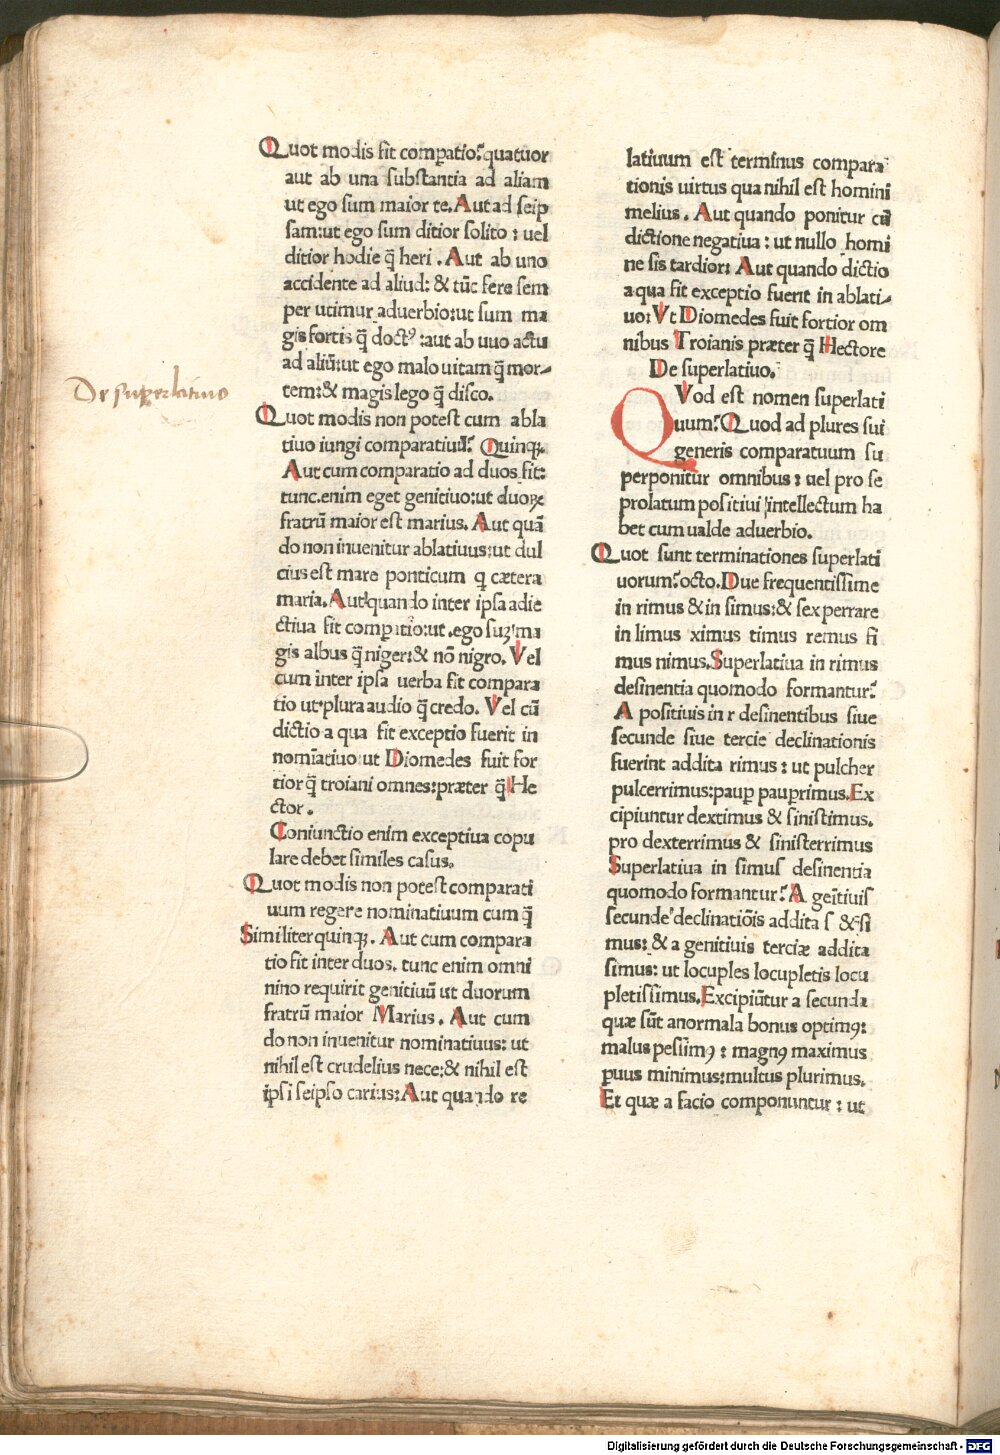 Quot modis fit comꝑatio? quatuor
aut ab una substantia ad aliam
ut ego sum maior te. Aut ad seip
sam: ut ego sum ditior solito : uel
ditior hodie q̃ heri . Aut ab uno
accidente ad aliud: & tūc fere sem
per utimur aduerbio: ut sum ma
gis fortis q̃ doctꝰ : aut ab uuo actu
ad aliū: ut ego malo uitam q̃ mor-
tem: & magis lego q̃ disco.
De superlatiuo
Quot modis non potest cum abla
tiuo iungi comparatiuū? Quinqꝫ.
Aut cum comparatio ad duos fit:
tunc.enim eget genitiuo: ut duoꝝ
fratrū maior est marius. Aut quā
do non inuenitur ablatiuus: ut dul
cius est mare ponticum q̃ cætera
maria. Aut quando inter ipsa adie
ctiua fit comꝑatio: ut .ego suꝫ ma
gis albus q̃ niger: & nō nigro. Vel
cum inter ipsa uerba fit compara
tio ut plura audio q̃ credo. Vel cū
dictio a qua fit exceptio fuerit in
nomīatiuo: ut Diomedes fuit for
tior q̃ troiani omnes: præter q̃ He
ctor .
Coniunctio enim exceptiua copu
lare debet similes casus.
Quot modis non potest comparati
uum regere nominatiuum cum q̃
Similiter quinqꝫ . Aut cum compara
tio fit inter duos. tunc enim omni
nino requirit genitiuū ut duorum
fratrū maior Marius . Aut cum
do non inuenitur nominatiuus: ut
nihil est crudelius nece: & nihil est
ipsi seipso carius: Aut quando re
latiuum est terminus compara
tionis uirtus qua nihil est homini
melius . Aut quando ponitur cū
dictione negatiua : ut nullo homi
ne sis tardior: Aut quando dictio
a qua fit exceptio fuerit in ablati-
uo: Vt Diomedes fuit fortior om
nibus Troianis præter q̃ Hectore
De superlatiuo.
QVod est nomen superlati
uum? Quod ad plures sui
generis comparatuum su
perponitur omnibus : uel pro se
prolatum positiui intellectum ha
bet cum ualde aduerbio.
Quot sunt terminationes superlati
uorum? octo. Due frequentissime
in rimus & in simus: & sex perrare
in limus ximus timus remus fi
mus nimus. Superlatiua in rimus
desinentia quomodo formantur?
A positiuis in r desinentibus siue
secunde siue tercie declinationis
fuerint addita rimus : ut pulcher
pulcerrimus: pauꝑ pauꝑrimus. Ex
cipiuntur dextimus & sinistimus.
pro dexterrimus & sinisterrimus
Superlatiua in simus desinentia
quomodo formantur? A geītiuis
secunde declinatiōis addita s & si
mus: & a genitiuis terciæ addita
simus: ut locuples locupletis locu
pletissimus. Excipiūtur a secunda
quæ sūt anormala bonus optimꝯ:
malus pessimꝯ : magnꝯ maximus
ꝑuus minimus: multus plurimus.
Et quæ a facio componuntur : ut
Digitalisierung gefördert durch die Deutsche Forschungsgemeinschaft - DFG